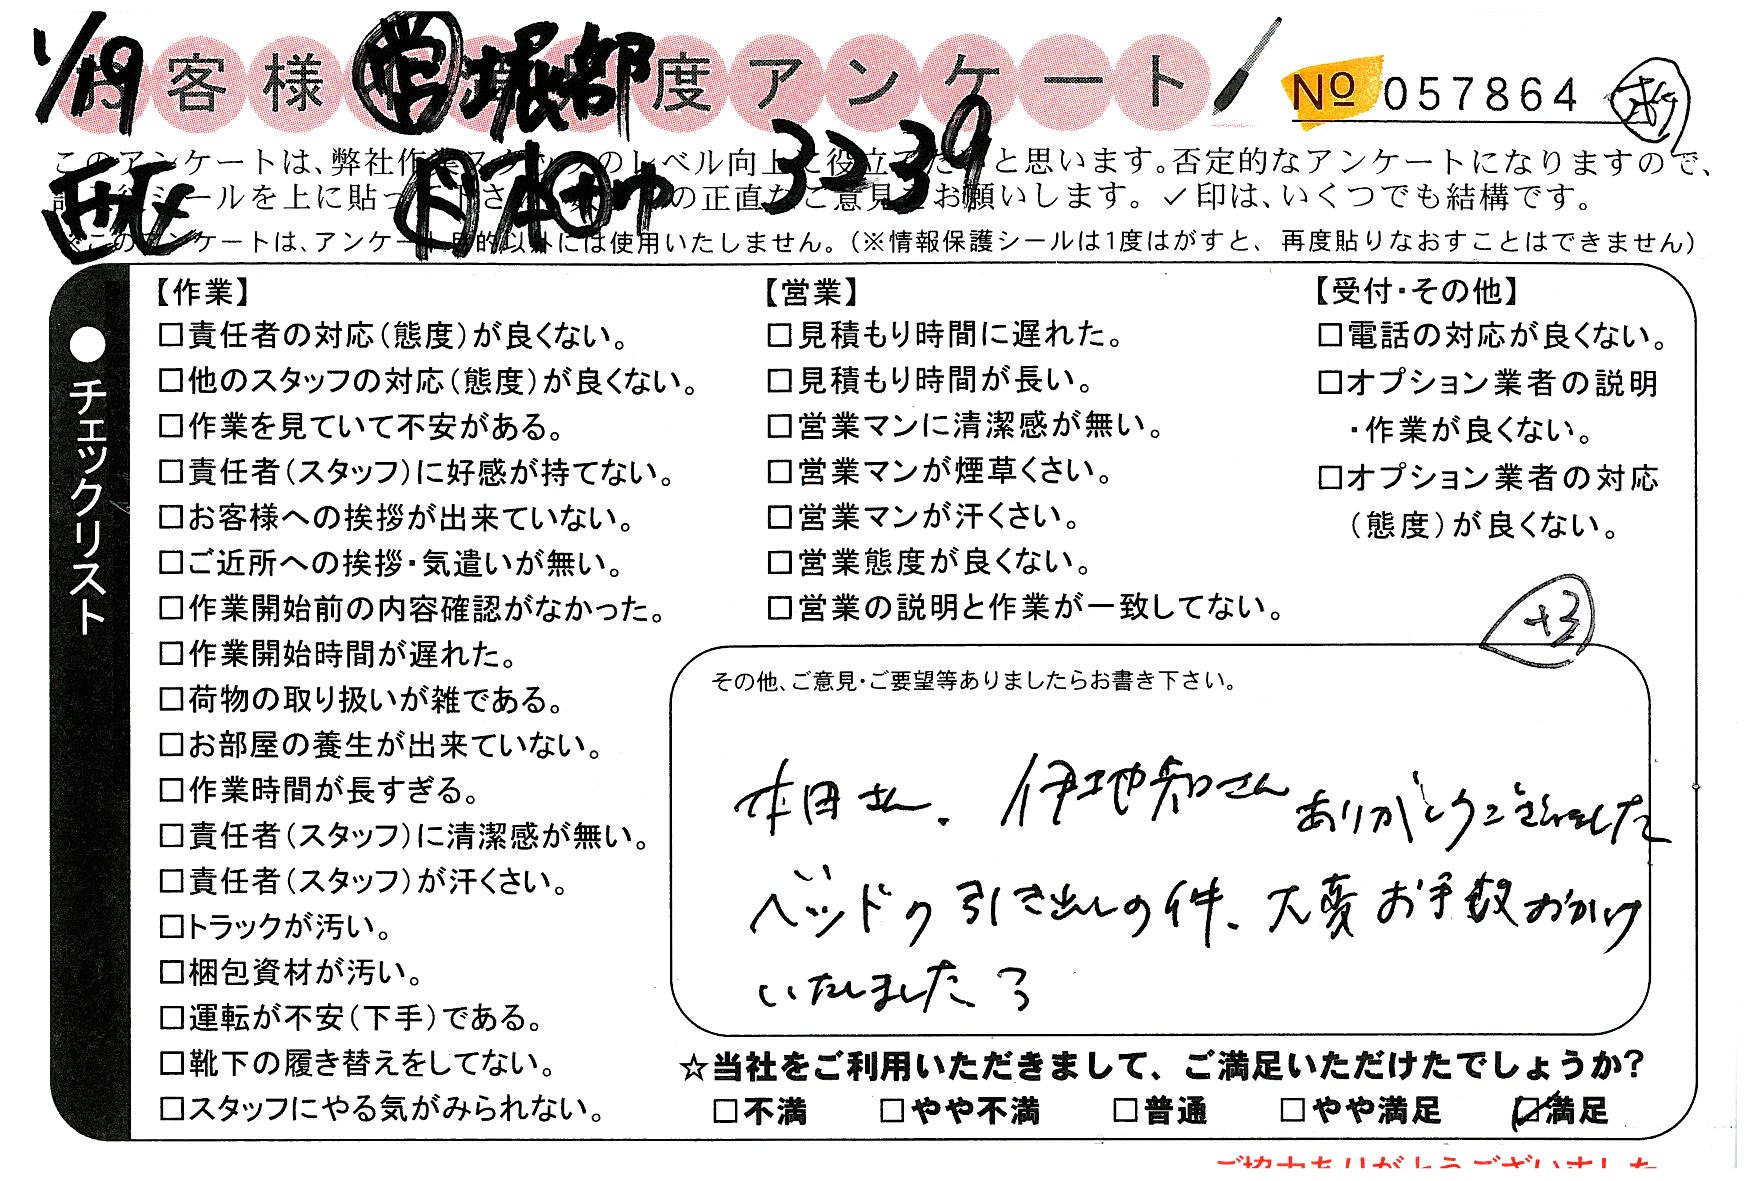 1/19 営 堀部
お客様満足度アンケート
№ 057864
3239
このアンケートは、弊社作業スタッフのレベル向上に役立てたいと思います。否定的なアンケートになりますので、
シールを上に貼って下さい。の正直なご意見をお願いします。✓印は、いくつでも結構です。
※このアンケートは、アンケート目的以外には使用いたしません。（※情報保護シールは1度はがすと、再度貼りなおすことはできません）
●チェックリスト
【作業】
□責任者の対応（態度）が良くない。
□他のスタッフの対応（態度）が良くない。
□作業を見ていて不安がある。
□責任者（スタッフ）に好感が持てない。
□お客様への挨拶が出来ていない。
□ご近所への挨拶・気遣いが無い。
□作業開始前の内容確認がなかった。
□作業開始時間が遅れた。
□荷物の取り扱いが雑である。
□お部屋の養生が出来ていない。
□作業時間が長すぎる。
□責任者（スタッフ）に清潔感が無い。
□責任者（スタッフ）が汗くさい。
□トラックが汚い。
□梱包資材が汚い。
□運転が不安（下手）である。
□靴下の履き替えをしてない。
□スタッフにやる気がみられない。
【営業】
□見積もり時間に遅れた。
□見積もり時間が長い。
□営業マンに清潔感が無い。
□営業マンが煙草くさい。
□営業マンが汗くさい。
□営業態度が良くない。
□営業の説明と作業が一致してない。
【受付・その他】
□電話の対応が良くない。
□オプション業者の説明
・作業が良くない。
□オプション業者の対応
（態度）が良くない。
+3
その他、ご意見・ご要望等ありましたらお書き下さい。
本田さん、伊地知さんありがとうございました
ベッドの引き出しの件、大変お手数おかけ
いたしました
☆当社をご利用いただきまして、ご満足いただけたでしょうか？
□不満 □やや不満 □普通 □やや満足 ☑満足
ご協力ありがとうございました